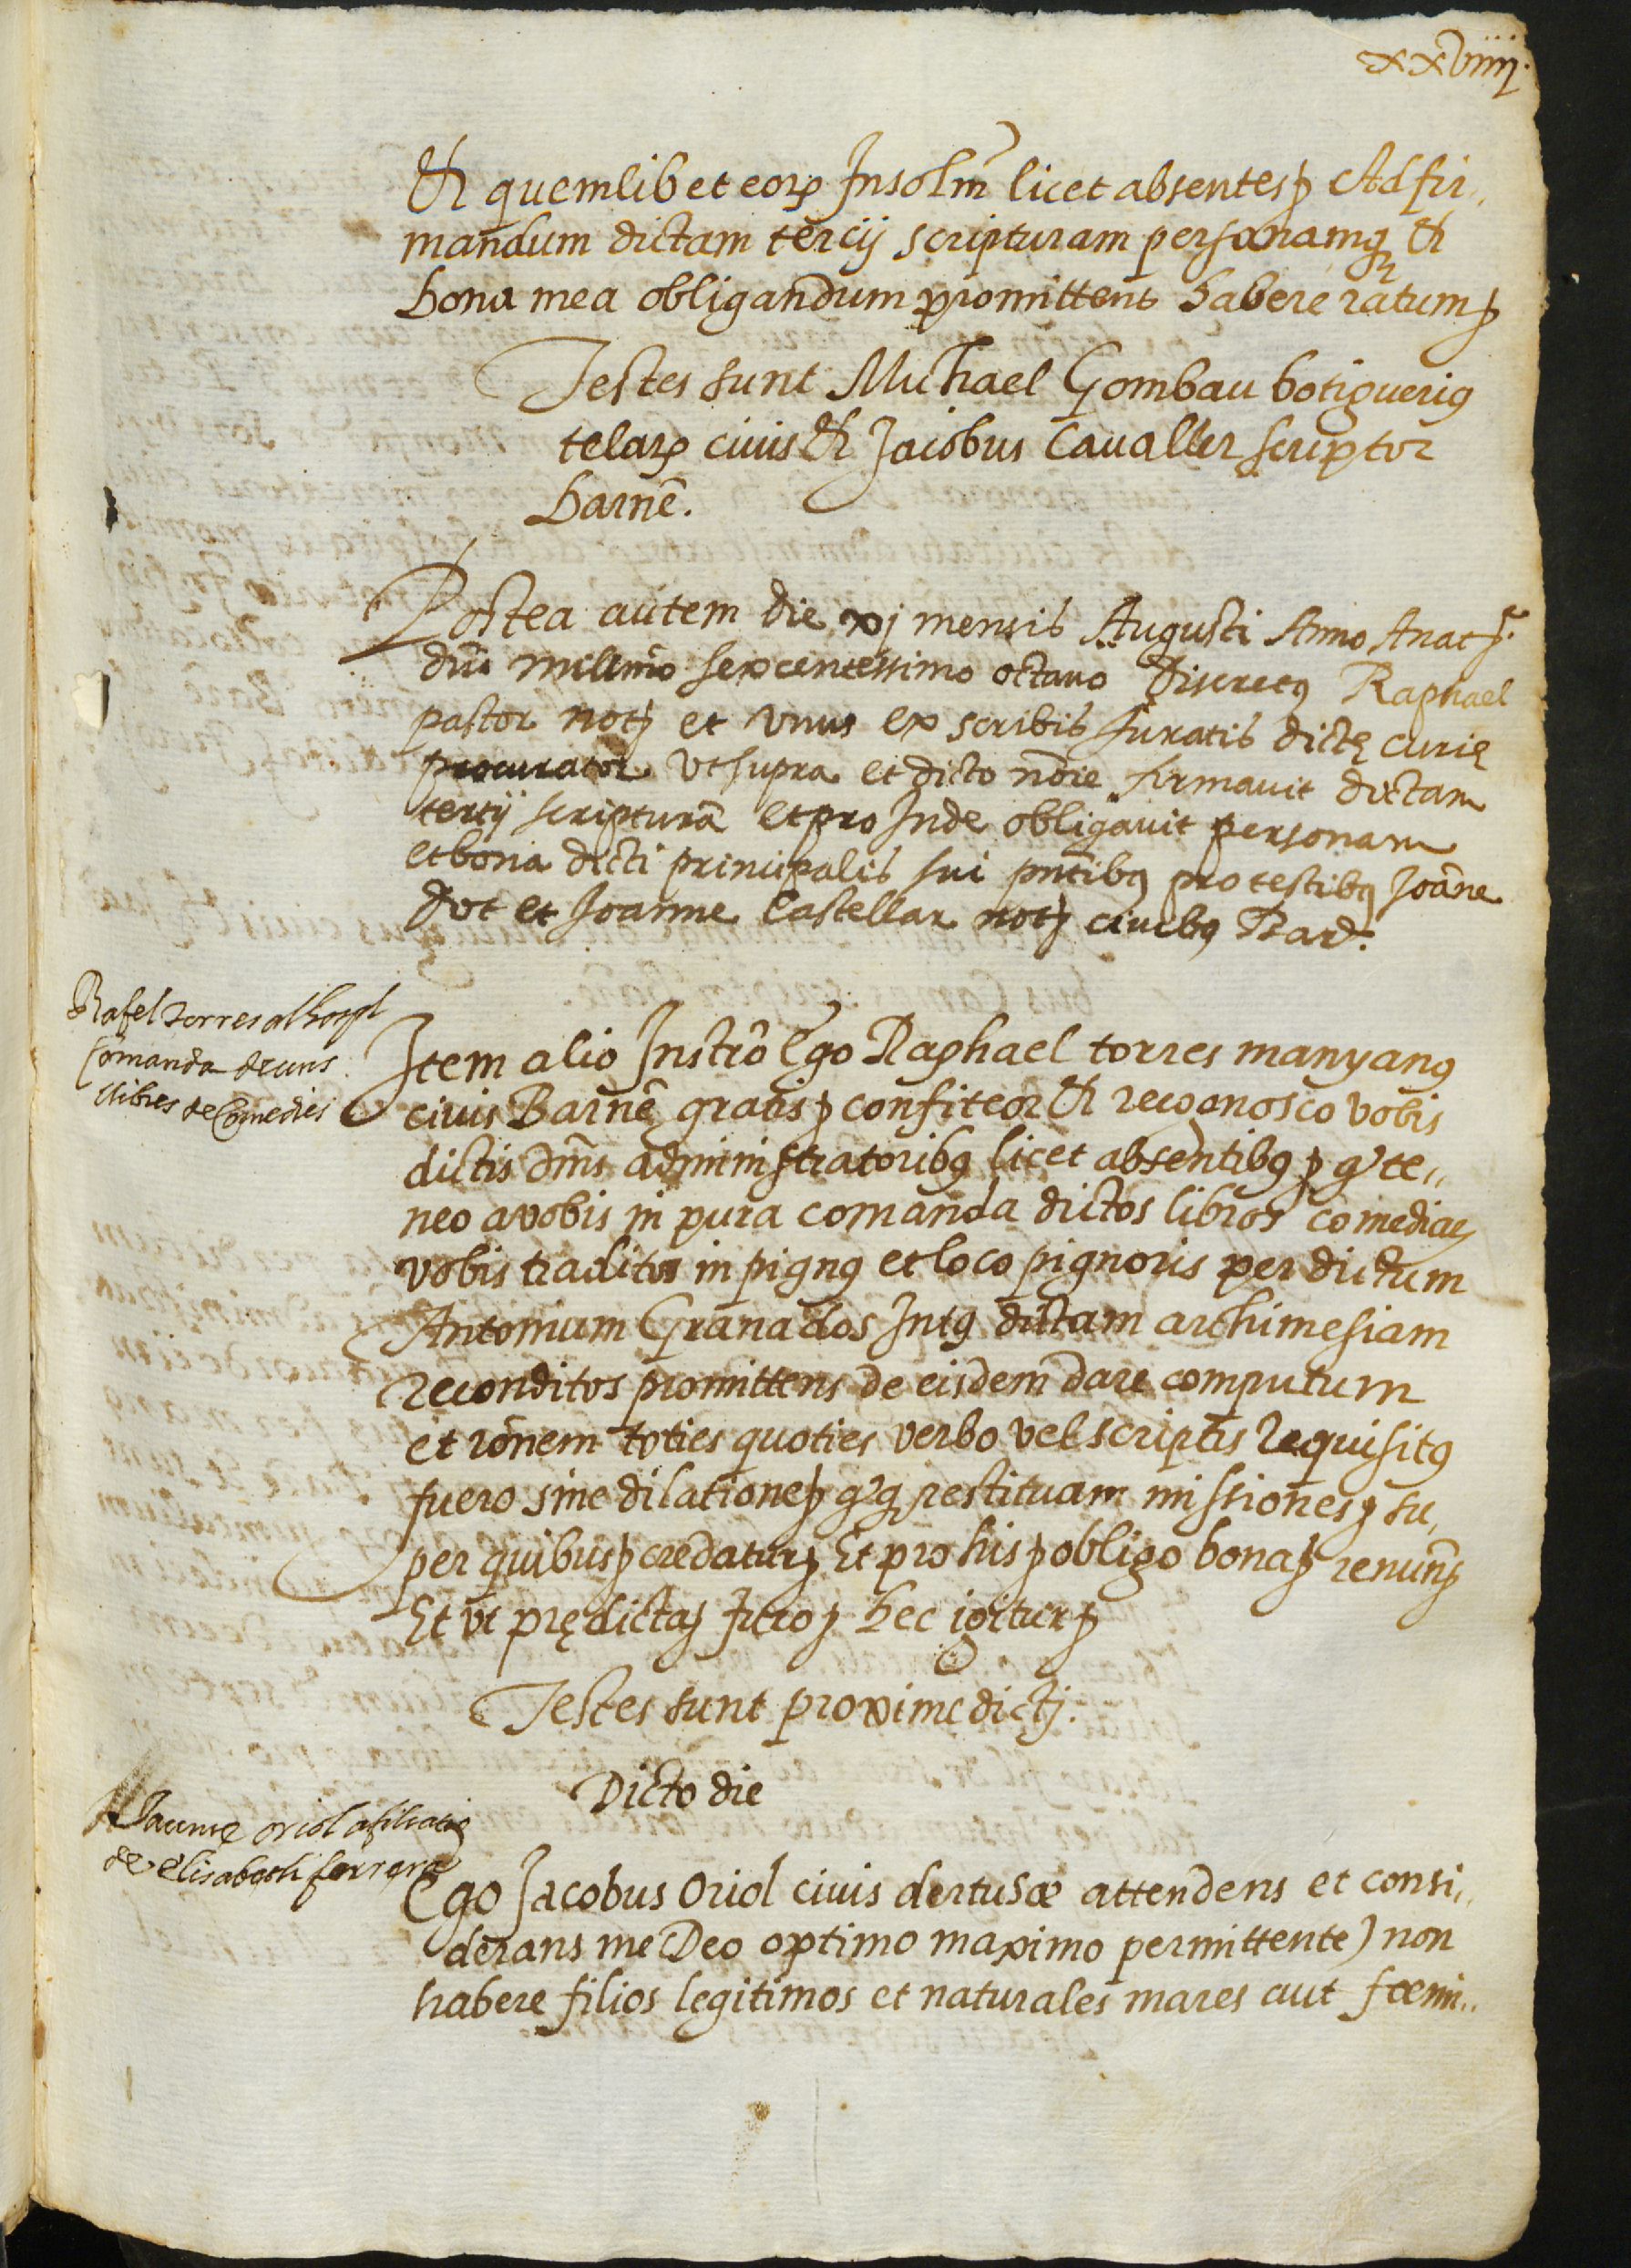 xxviiij.
Et quemlibet eorꝝ Insolm̄ licet absentesꝫ Ad fir,,
mandum dictam tercij scripturam personamq̨ Et
bona mea obligandum promittens habere ratumꝫ
Testes sunt Michael Gombau botigueriꝯ
telarꝝ ciuis Et Jacobus Caualler scriptor
barnē.
Postea autem die xj mensis Augusti Anno Anatᵉ.
dnī millmo sexcentessimo octauo Discretꝯ Raphael
pastor notꝫ et vnus ex scribis Juratis dictę curię
procurator vt supra et dicto nōie firmauit dictam
tertij scripturā et pro Inde obligauit personam
et bona dicti principalis sui pn̄tibꝯ pro testibꝯ Joāne
dot et Joanne Castellar notꝫ ciuibꝯ Barꝫ.
Rafel torres al hospl
Comanda de uns
llibres de Comedies
Item alio Instrō Ego Raphael torres manyanꝯ
ciuis Barnē gratisꝫ confiteor Et recognosco vobis
dictis dn̄is administratoribꝯ licet absentibꝯꝫ qͥ te,,
neo a vobis in pura comanda dictos libros comediaꝝ
vobis traditos in pignꝯ et loco pignoris per dictum
Antonium Granados Intꝯ dictam archimesiam
reconditos promittens de eisdem dare computum
et rōnem toties quoties verbo vel scriptis requisitꝯ
fuero sine dilationeꝫ qͥq̨ restituam missionesꝫ su,,
per quibusꝫ credaturꝫ Et pro hisꝫ obligo bonaꝫ renunꝫ
Et vt prędictaꝫ Juroꝫ hec igiturꝫ
Testes sunt proxime dictj.
Dicto die
Jaume oriol afiliatio
de Elisabeth ferrera
Ego Jacobus Oriol ciuis dertusæ attendens et consi,,
derans me Deo optimo maximo permittente) non
habere filios legitimos et naturales mares aut fœmi,,